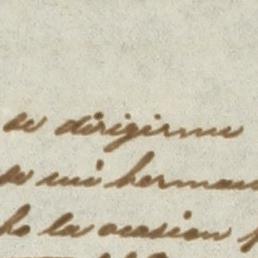 de dirigirme
de mi herman
ho la ocasion p